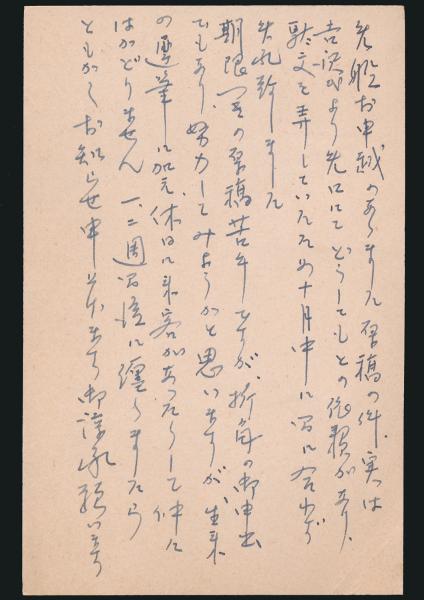 先般お申越のありました原稿の件、実は
吉沢氏より先口にてどうしてもとの依頼があり、
駄文を弄していたため十月中に間に合わず
失礼致しました
期限一ぱいの原稿苦手ですが、折角の御申出
でもあり、努力してみようかと思いますが、生来
の遅筆に加え、休日に来客があったりして仲々
はかどりません 一、二週間後に纏りましたら
ともかくお知らせ申上げます 御諒承願います